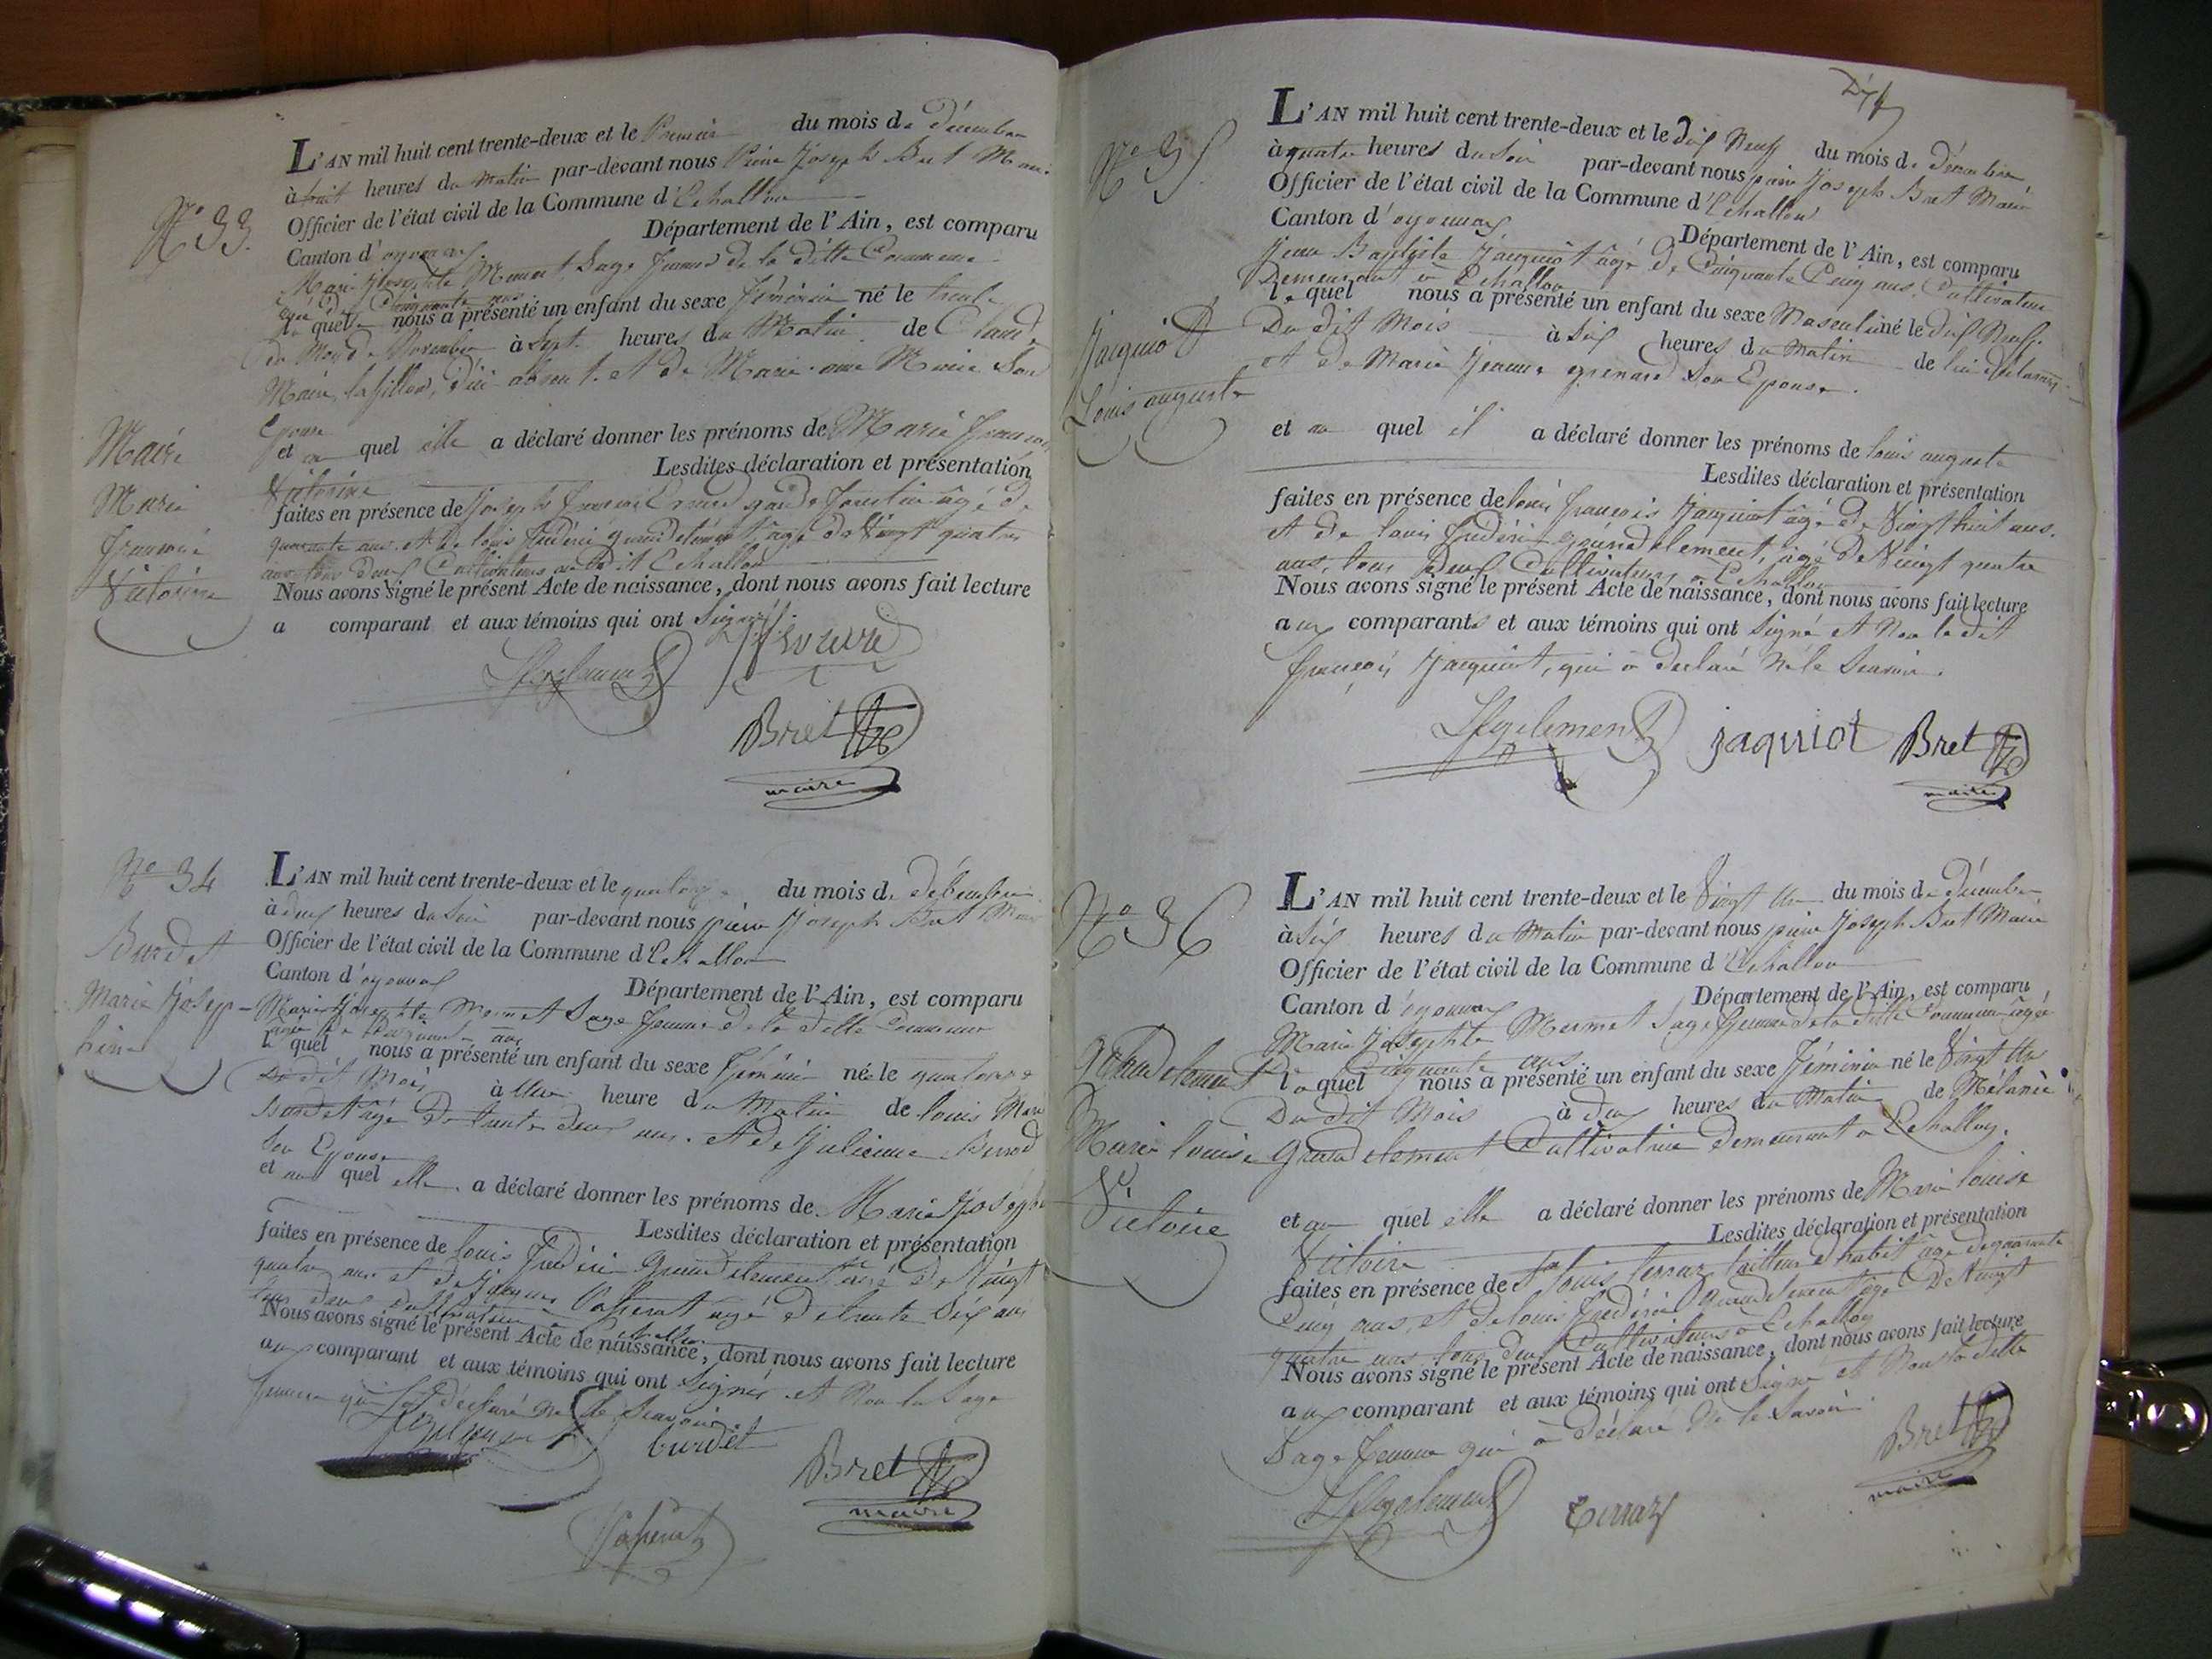 N° 33.
Maire
Marie
françoise
Victorine
L'AN mil huit cent trente-deux et le Premier du mois de décembre
à huit heures du Matin par-devant nous Pierre Joseph Bret Maire
Officier de l'état civil de la Commune d'Echallon
Canton d'oyonnax Département de l'Ain, est comparu
Marie Josephte Mermet Sage femme de la ditte Commune
âgée de Cinquante ans
la quelle nous a présenté un enfant du sexe féminin né le trente
du Mois de Novembre à Sept heures du Matin de Claude
Maire absent et de Marie Maire Son
Epouse
et au quel elle a déclaré donner les prénoms de Marie françoise
Victorine Lesdites déclaration et présentation
faites en présence de Joseph françois âgé de
quarante ans et de louis frédéric grandclément âgé de Vingt quatre
ans tous deux Cultivateurs au dit Echallon
Nous avons signé le présent Acte de naissance, dont nous avons fait lecture
a comparant et aux témoins qui ont Signé
Bret
maire
N° 34
Burdet
Marie Josep-
hine
L'AN mil huit cent trente-deux et le quatorze du mois de décembre
à deux heures du Soir par-devant nous pierre Joseph Bret Maire
Officier de l'état civil de la Commune d'Echallon
Canton d'oyonnax Département de l'Ain, est comparu
Marie Josephte Mermet Sage femme de la ditte Commune
âgée de Cinquante ans
l quel nous a présenté un enfant du sexe féminin né le quatorze
Du dit Mois à Une heure du Matin de louis Marie
Burdet âgé De trente deux ans. et de Julienne
Son Epouse
et au quel elle a déclaré donner les prénoms de Marie Joséphine
Lesdites déclaration et présentation
faites en présence de louis frédéric grandclement âgé de Vingt
quatre ans et de Passerat âgé de trente Six ans
tous deux Cultivateurs à Echallon
Nous avons signé le présent Acte de naissance, dont nous avons fait lecture
aux comparant et aux témoins qui ont Signés et Non la Sage
femme qui a déclaré Ne le Scavoir
burdet
Bret
maire
Passerat
N° 35.
Jacquiot
Louis auguste
L'AN mil huit cent trente-deux et le Dix Neuf du mois de décembre
à quatre heures du Soir par-devant nous pierre Joseph Bret Maire
Officier de l'état civil de la Commune d'Echallon
Canton d'oyonnax Département de l'Ain, est comparu
Jean Baptiste Jacquiot âgé de Cinquante Cinq ans, Cultivateur
Demeurant à Echallon
le quel nous a présenté un enfant du sexe Masculin né le dix Neuf
Du dit Mois à Six heures du Matin de lui déclarant
et de Marie Jeanne grenard Son Epouse.
et au quel il a déclaré donner les prénoms de louis auguste
Lesdites déclaration et présentation
faites en présence de louis françois Jacquiot âgé de Vingt huit ans.
et de louis frédéric grandclement, âgé De Vingt quatre
ans, tous Deux Cultivateurs à Echallon
Nous avons signé le présent Acte de naissance, dont nous avons fait lecture
aux comparants et aux témoins qui ont Signé et Non le dit
françois Jacquiot, qui a declaré Ne le Scavoir.
jaquiot
Bret
maire
N° 36
Grandclement
Marie louise
Victoire
L'AN mil huit cent trente-deux et le Vingt Un du mois de décembre
à Six heures du Matin par-devant nous pierre Joseph Bret Maire
Officier de l'état civil de la Commune d'Echallon
Canton d'oyonnax Département de l'Ain, est comparu
Marie Josephte Mermet Sage femme de la ditte Commune âgée
Cinquante ans
la quel nous a présenté un enfant du sexe féminin né le Vingt Un
Du dit Mois à deux heures du Matin de Mélanie
grandclement Cultivatrice Demeurant à Echallon.
et au quel elle a déclaré donner les prénoms de Marie louise
Victoire Lesdites déclaration et présentation
faites en présence de louis terraz tailleur d'habit âgé de quarante
Cinq ans, et de louis frédéric grandclement âgé De Vingt
quatre ans tous deux Cultivateurs à Echallon
Nous avons signé le présent Acte de naissance, dont nous avons fait lecture
aux comparant et aux témoins qui ont Signé et Non la ditte
Sage femme qui a Déclaré Ne le Savoir
Terraz
Bret
maire